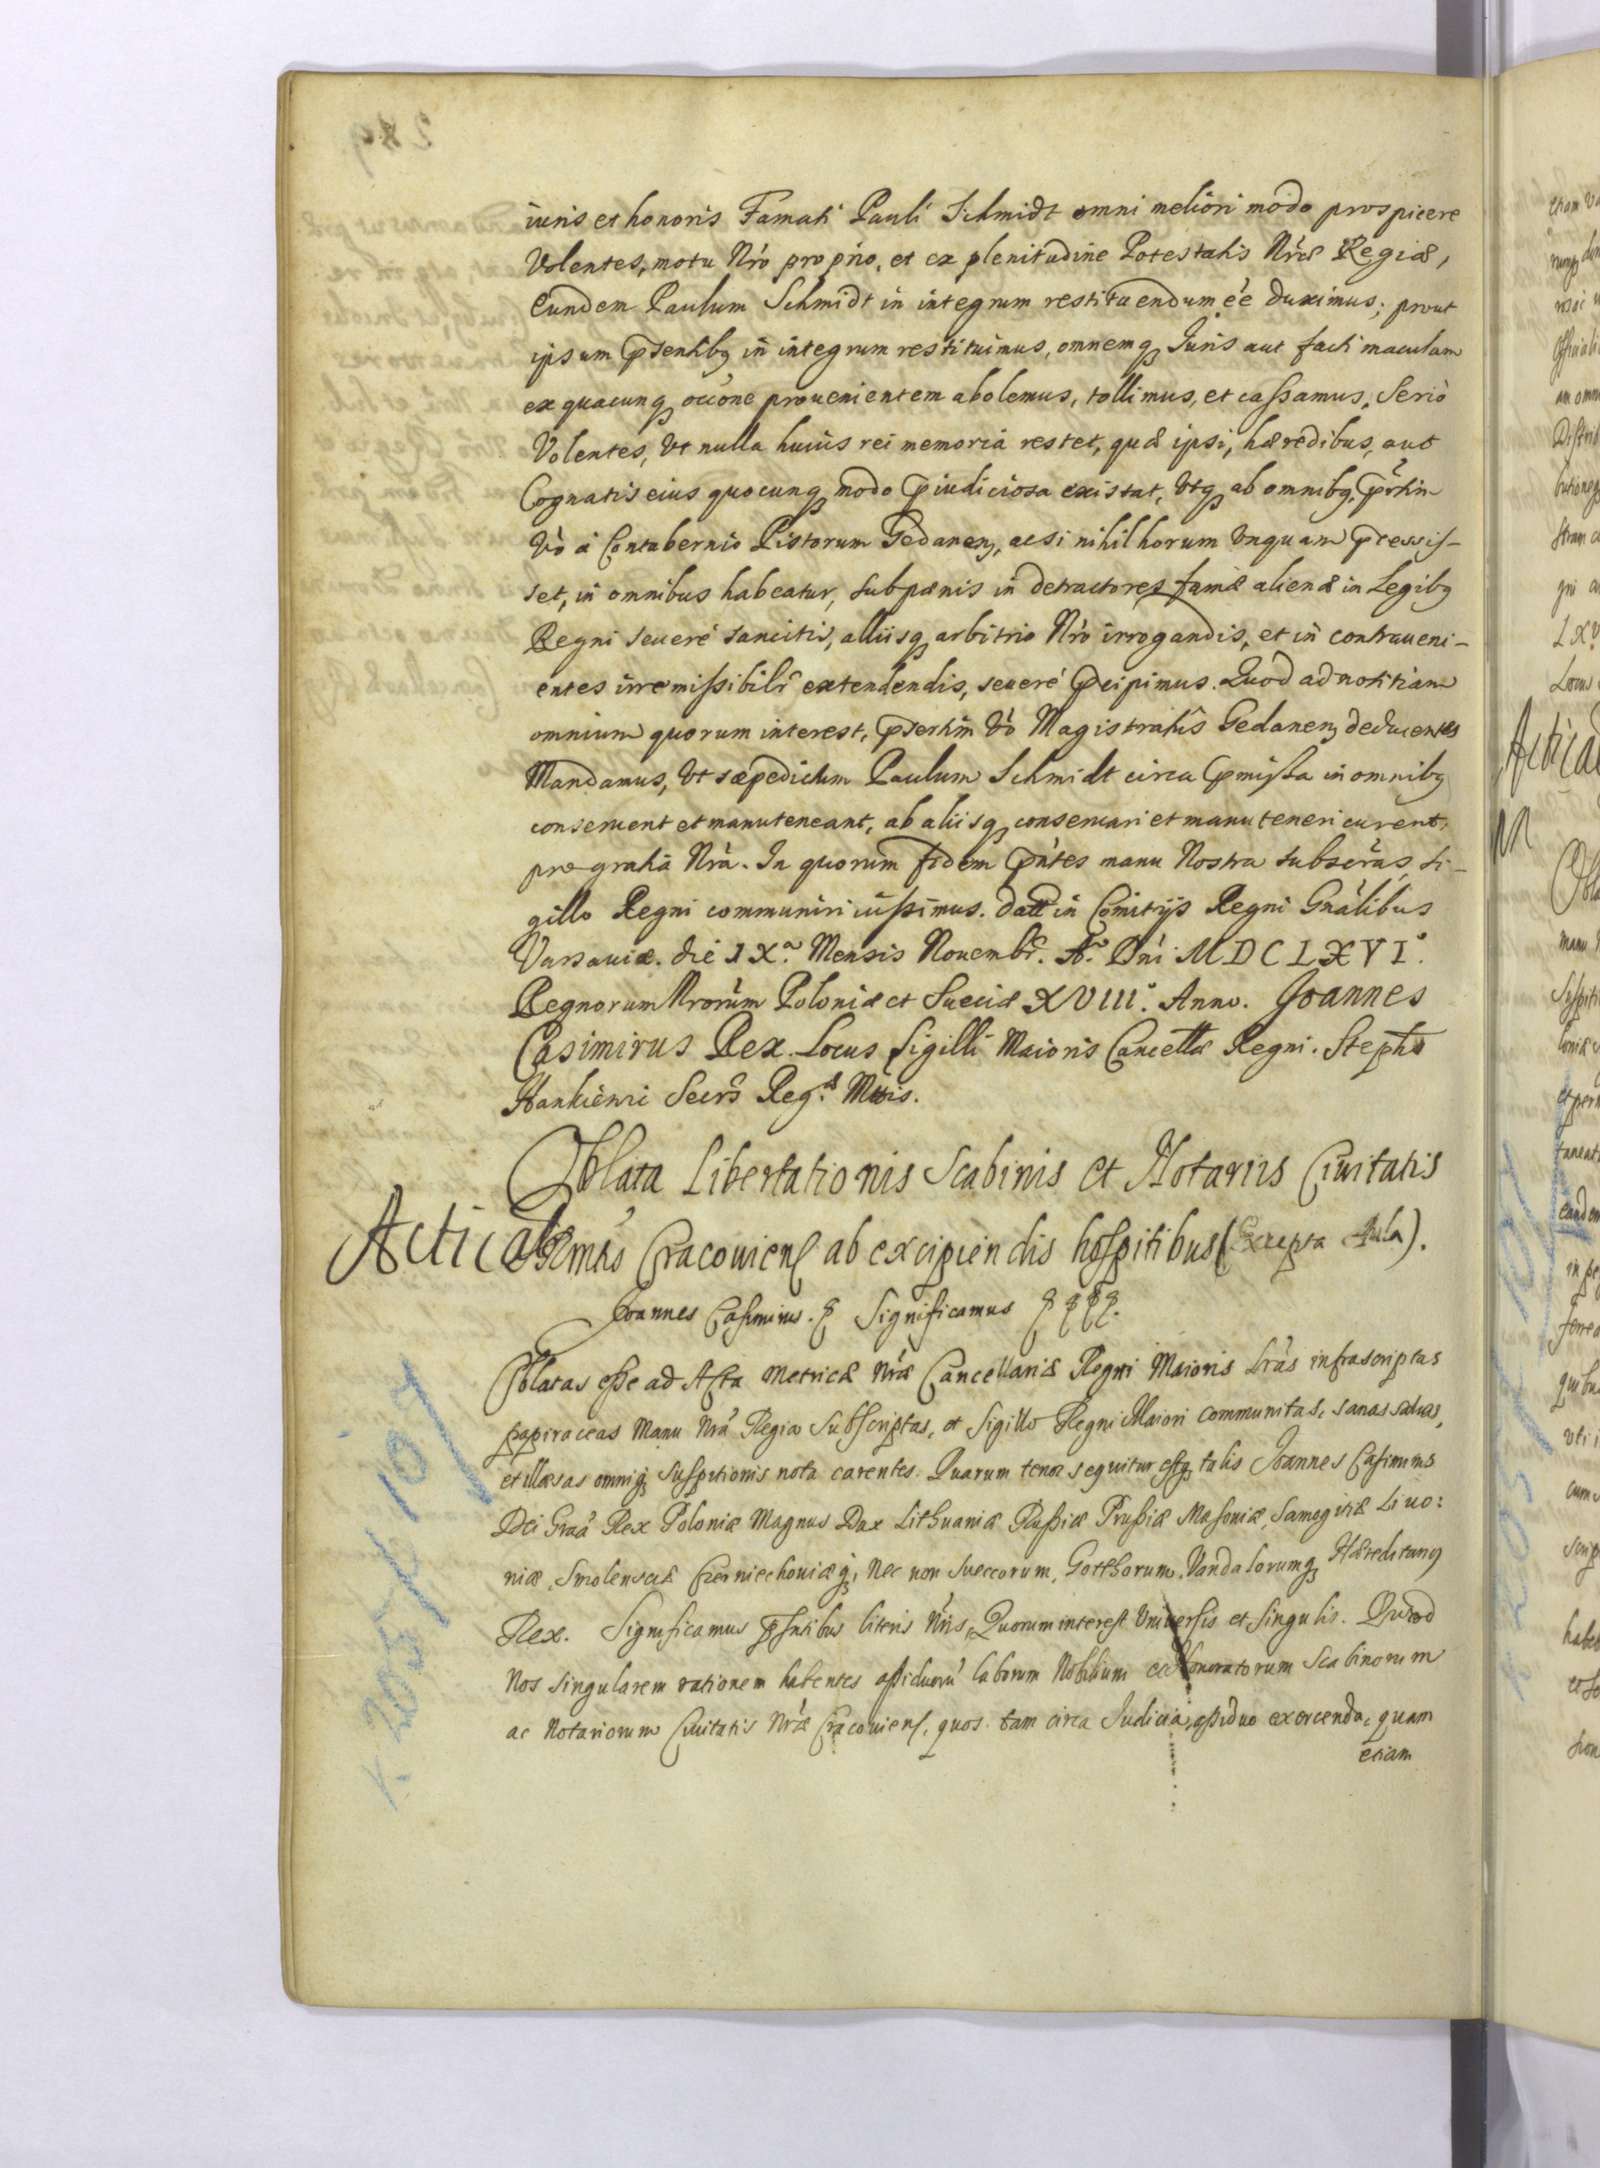 iuris et honoris Famati Pauli Schmidt omni meliori modo prospicere
Volentes, motu Nro proprio, et ex plenitudine Potestatis Nræ Regiæ,
Eundem Paulum Schmidt in integrum restituendum ee duximus; prout
ipsum pñsentibq in integrum restituimus, omnemq Iuris aut facti maculam
ex quacunq occõne prouenientem abolemus, tollimus, et cassamus, Seriò
Volentes, Vt nulla huius rei memoria restet, quæ ipsi, hæredibus, aut
Cognatis eius quocunq modo piudiciosa existat, Vtq ab omnibq, prtim
Vò á Contubernio Pistorum Gedanen, acsi nihil horum Vnquam pcessis-
set, in omnibus habeatur, sub pænis in detractores famæ alienæ in Legibq
Regni seueré sancitis, aliisq arbitrio Nro irrogandis, et in contraueni-
entes irremissibilr extendendis, seueré pcipimus. Quod ad notitiam
omnium quorum interest, psertim Vò Magistratûs Gedanen deducentes
Mandamus, Vt sæpedictum Paulum Schmidt circa pmissa in omnibq
conseruent et manuteneant, ab aliisq conseruari et manuteneri curent,
pro gratiâ Nrâ. In quorum fidem pntes manu Nostra subscrâs, si-
gillo Regni communiri iussimus. Datt in Comitijs Regni Gnâlibus
Varsauiæ. die IX.a Mensis Nouembr. A.o Dni MDCLXVI.o
Regnorum Nrorum Poloniæ et Sueciæ XVIII.o Anno. Joannes
Casimirus Rex. Locus Sigilli Maioris Cancellæ Regni. Steph
Hankiewi Secrs Reg.æ Mttis.
Oblata Libertationis Scabinis et Notariis Ciuitatis
Acticat
Cracouiens ab excipiendis hospitibus (Excepta Aula).
Joannes Casimirus. Significamus
Oblatas esse ad Acta Metricæ Nræ Cancellariæ Regni Maioris Lrâs infrascriptas
papiraceas Manu Nrâ Regia Subscriptas, et Sigillo Regni Maiori communitas, sanas saluas,
et illæsas omniq suspitionis nota carentes. Quarum tenor sequitur estq talis Joannes Casimirus
Dei Graâ Rex Poloniæ Magnus Dux Lithuaniæ Russiæ Prussiæ Masouiæ, Samogitiæ Liuo:
niæ, Smolensciæ Czerniechouiæq, Nec non Sueccorum, Gotthorum, Vandalorumq Hæreditariq
Rex. Significamus psntibus literis Nris, Quorum interest Vniuersis et Singulis. Quod
Nos singularem rationem habentes assiduorû laborum Nobilium ac honoratorum Scabinorum
ac Notariorum Ciuitatis Nræ Cracouiens, quos tam circa Iudicia assiduo exercenda, quam
etiam